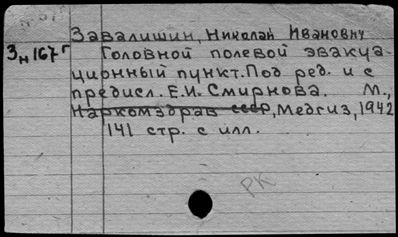 Завалишин, Николай Иванович
Зн167г Головной полевой эвакуа-
ционный пункт. Под ред. и с
предисл. Е.И. Смирнова. М.,
Наркомздрав СССР, Медгиз, 1942
141 стр. с илл.
РК